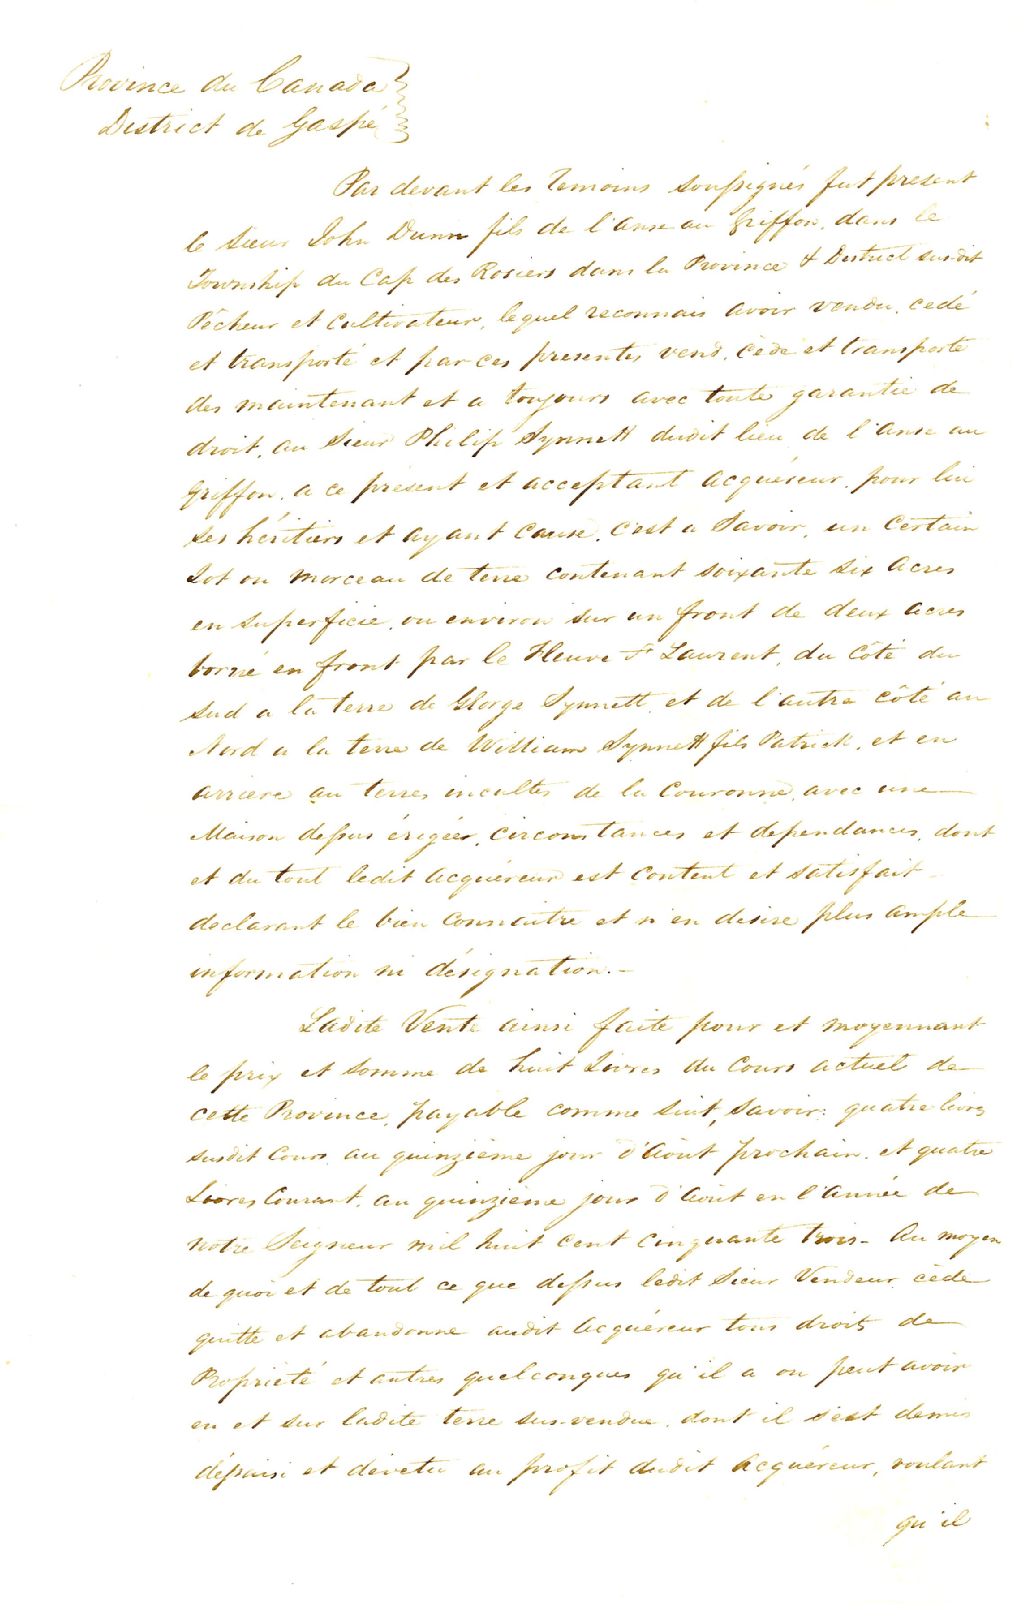 Province du Canada
District de Gaspé
Par devant les temoins soussignés fut present
le Sieur John Dunn fils de l'anse au Griffon, dans le
Township du Cap des Rosiers dans la Province & District susdit
Pêcheur et Cultivateur, lequel reconnais avoir vendu, cedé
et transporté et par ces presentes vend, cède et transporte
des maintenant et a toujours avec toute garantie de
droit, au Sieur Philip Synnett dudit lieu de l'anse au
Griffon, a ce présent et acceptant acquéreur, pour lui
ses héritiers et ayant cause, c'est a Savoir, un certain
Lot ou morceau de terre contenant soixante six acres
en superficie, ou environ sur un front de deux acres
borné en front par le Fleuve St Laurent, du Côté du
Sud a la terre de George Synnett, et de l'autre côté au
Nord a la terre de William Synnett fils Patrick, et en
arriere au terres incultes de la Couronne, avec une
Maison dessus érigée, circonstances et dependances, dont
et du tout ledit acquéreur est content et satisfait
declarant le bien connaitre et n'en desire plus ample
information ni désignation.
Ladite Vente ainsi faite pour et moyennant
le prix et somme de huit Livres du Cours actuel de
cette Province, payable comme suit, savoir: quatre livres
susdit Cours au quinzième jour d'Août prochain, et quatre
Livres Courant, au quinzième jour d'Août en l'année de
notre Seigneur mil huit cent cinquante trois - Au moyen
de quoi et de tout ce que dessus ledit Sieur Vendeur cède
quitte et abandonne audit acquéreur tous droits de
Propriété et autres quelconques qu'il a ou peut avoir
en et sur ladite terre sus-vendue, dont il s'est demis
déssaisi et devetu au profit dudit Acquéreur, voulant
qu'il